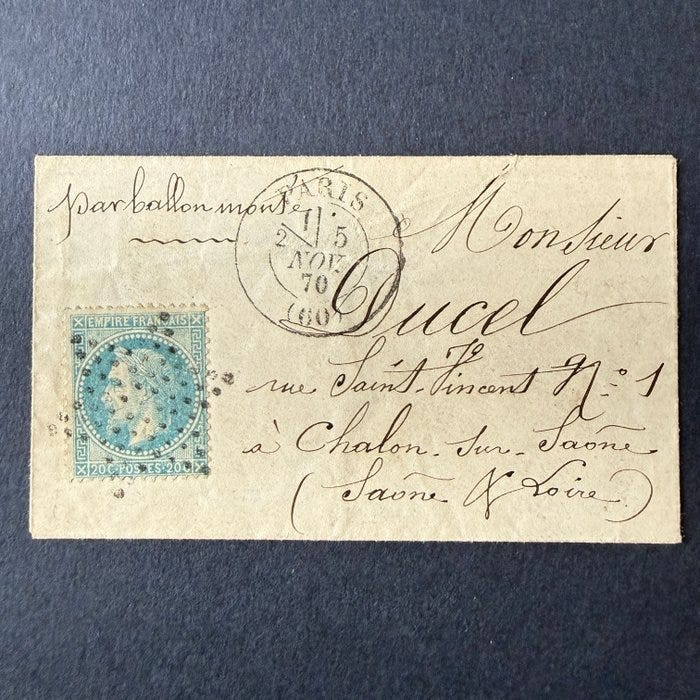 par ballon monté
PARIS
1
2 5
NOV.
70
(60)
Monsieur
Ducel
rue Saint-Vincent N° 1
à Chalon-sur-Saône
(Saône & Loire)
EMPIRE FRANÇAIS
20 C-POSTES-20 C